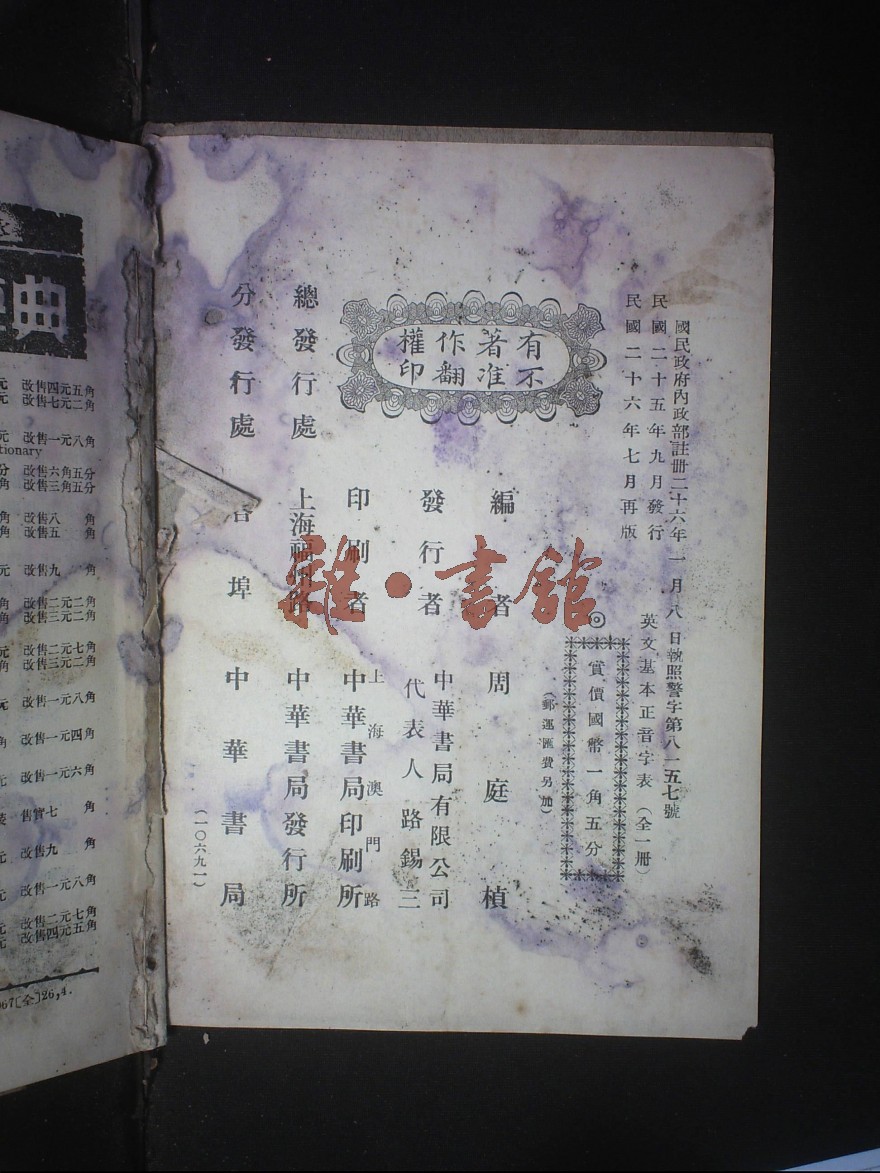 國民政府內政部註冊二十六年一月八日執照警字第八一五七號
民國二十五年九月發行
民國二十六年七月再版
英文基本正音字表（全一冊）
◎實價國幣一角五分
（郵運匯費另加）
有著作權
不准翻印
編者 周庭楨
發行者 中華書局有限公司
代表人 路錫三
印刷者 上海澳門路
中華書局印刷所
總發行處 上海福州路 中華書局發行所
分發行處 各埠 中華書局
（一〇六九一）
雜·書館
典
改售四元五角
改售七元二角
改售一元八角
tionary
改售六角五分
改售三角五分
改售八角
改售五角
改售九角
改售二元二角
改售三元二角
改售二元七角
改售三元二角
改售一元八角
改售一元四角
改售一元六角
售實七角
改售九角
改售一元八角
改售二元七角
改售四元五角
067〔全〕26,4.